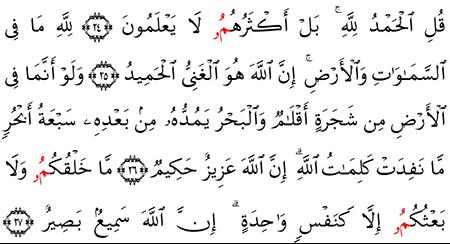 قُلِ ٱلْحَمْدُ لِلَّهِۚ بَلْ أَكْثَرُهُمُۥ لَا يَعْلَمُونَ ﴿٢٤﴾ لِلَّهِ مَا فِى
ٱلسَّمَٰوَٰتِ وَٱلْأَرْضِۚ إِنَّ ٱللَّهَ هُوَ ٱلْغَنِىُّ ٱلْحَمِيدُ ﴿٢٥﴾ وَلَوْ أَنَّمَا فِى
ٱلْأَرْضِ مِن شَجَرَةٍ أَقْلَٰمٌ وَٱلْبَحْرُ يَمُدُّهُۥ مِنۢ بَعْدِهِۦ سَبْعَةُ أَبْحُرٍ
مَّا نَفِدَتْ كَلِمَٰتُ ٱللَّهِۗ إِنَّ ٱللَّهَ عَزِيزٌ حَكِيمٌ ﴿٢٦﴾ مَّا خَلْقُكُمُۥ وَلَا
بَعْثُكُمُۥ إِلَّا كَنَفْسٍ وَٰحِدَةٍۗ إِنَّ ٱللَّهَ سَمِيعٌۢ بَصِيرٌ ﴿٢٧﴾